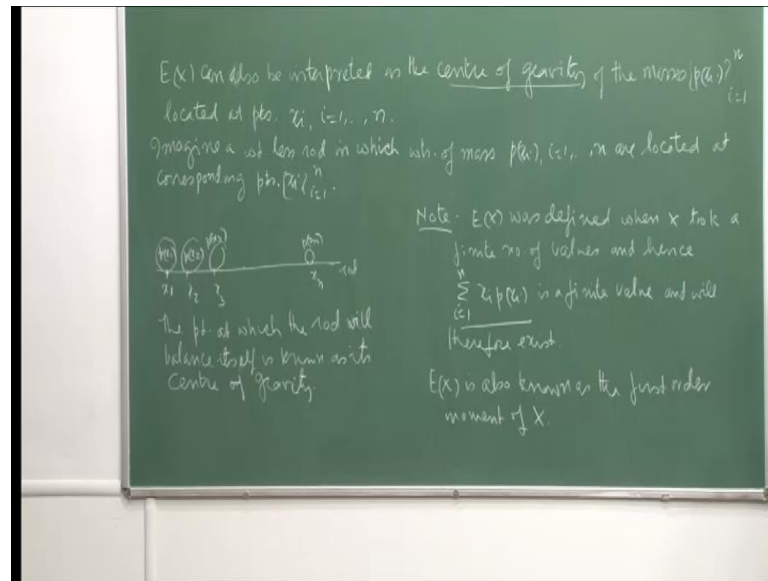 E(X) can also be interpreted as the centre of gravity of the masses {p(xi)}ⁿi=1
located at pts. xi, i=1,..,n.
Imagine a wt less rod in which wts. of mass p(xi), i=1,..,n are located at
corresponding pts. {xi}ⁿi=1.
p(x1) p(x2) p(x3) p(xn)
x1 x2 x3 xn rod
The pt. at which the rod will
balance itself is known as its
Centre of gravity.
Note: E(X) was defined when X took a
finite no. of values and hence
∑ⁿi=1 xi p(xi) is a finite value and will
therefore exist.
E(X) is also known as the first order
moment of X.